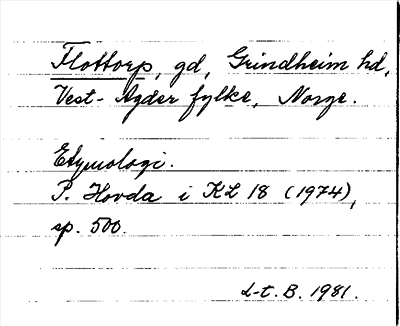 Flottorp, gd, Grindheim hd,
Vest-Agder fylke, Norge.
Etymologi.
P. Hovda i KL 18 (1974),
sp. 500.
L-t. B. 1981.